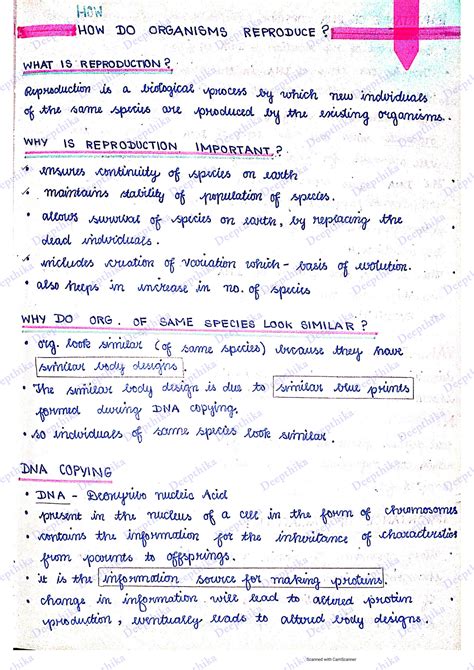 HOW
HOW DO ORGANISMS REPRODUCE ?
WHAT IS REPRODUCTION ?
Reproduction is a biological process by which new individuals
of the same species are produced by the existing organisms..
WHY IS REPRODUCTION IMPORTANT ?
• ensures continuity of species on earth
• maintains stability of population of species.
• allows survival of species on earth, by replacing the
dead individuals.
• includes creation of variation which - basis of evolution.
• also helps in increase in no. of species
WHY DO ORG. OF SAME SPECIES LOOK SIMILAR ?
• org. look similar (of same species) because they have
similar body designs.
• The similar body design is due to similar blue prints
formed during DNA copying.
• so individuals of same species look similar.
DNA COPYING
• DNA - Deoxyribo nucleic Acid
• present in the nucleus of a cell in the form of chromosomes
• contains the information for the inheritance of characteristics
from parents to offsprings.
• it is the information source for making proteins.
• change in information will lead to altered protein
production, eventually leads to altered body designs.
Scanned with CamScanner
Deepthika